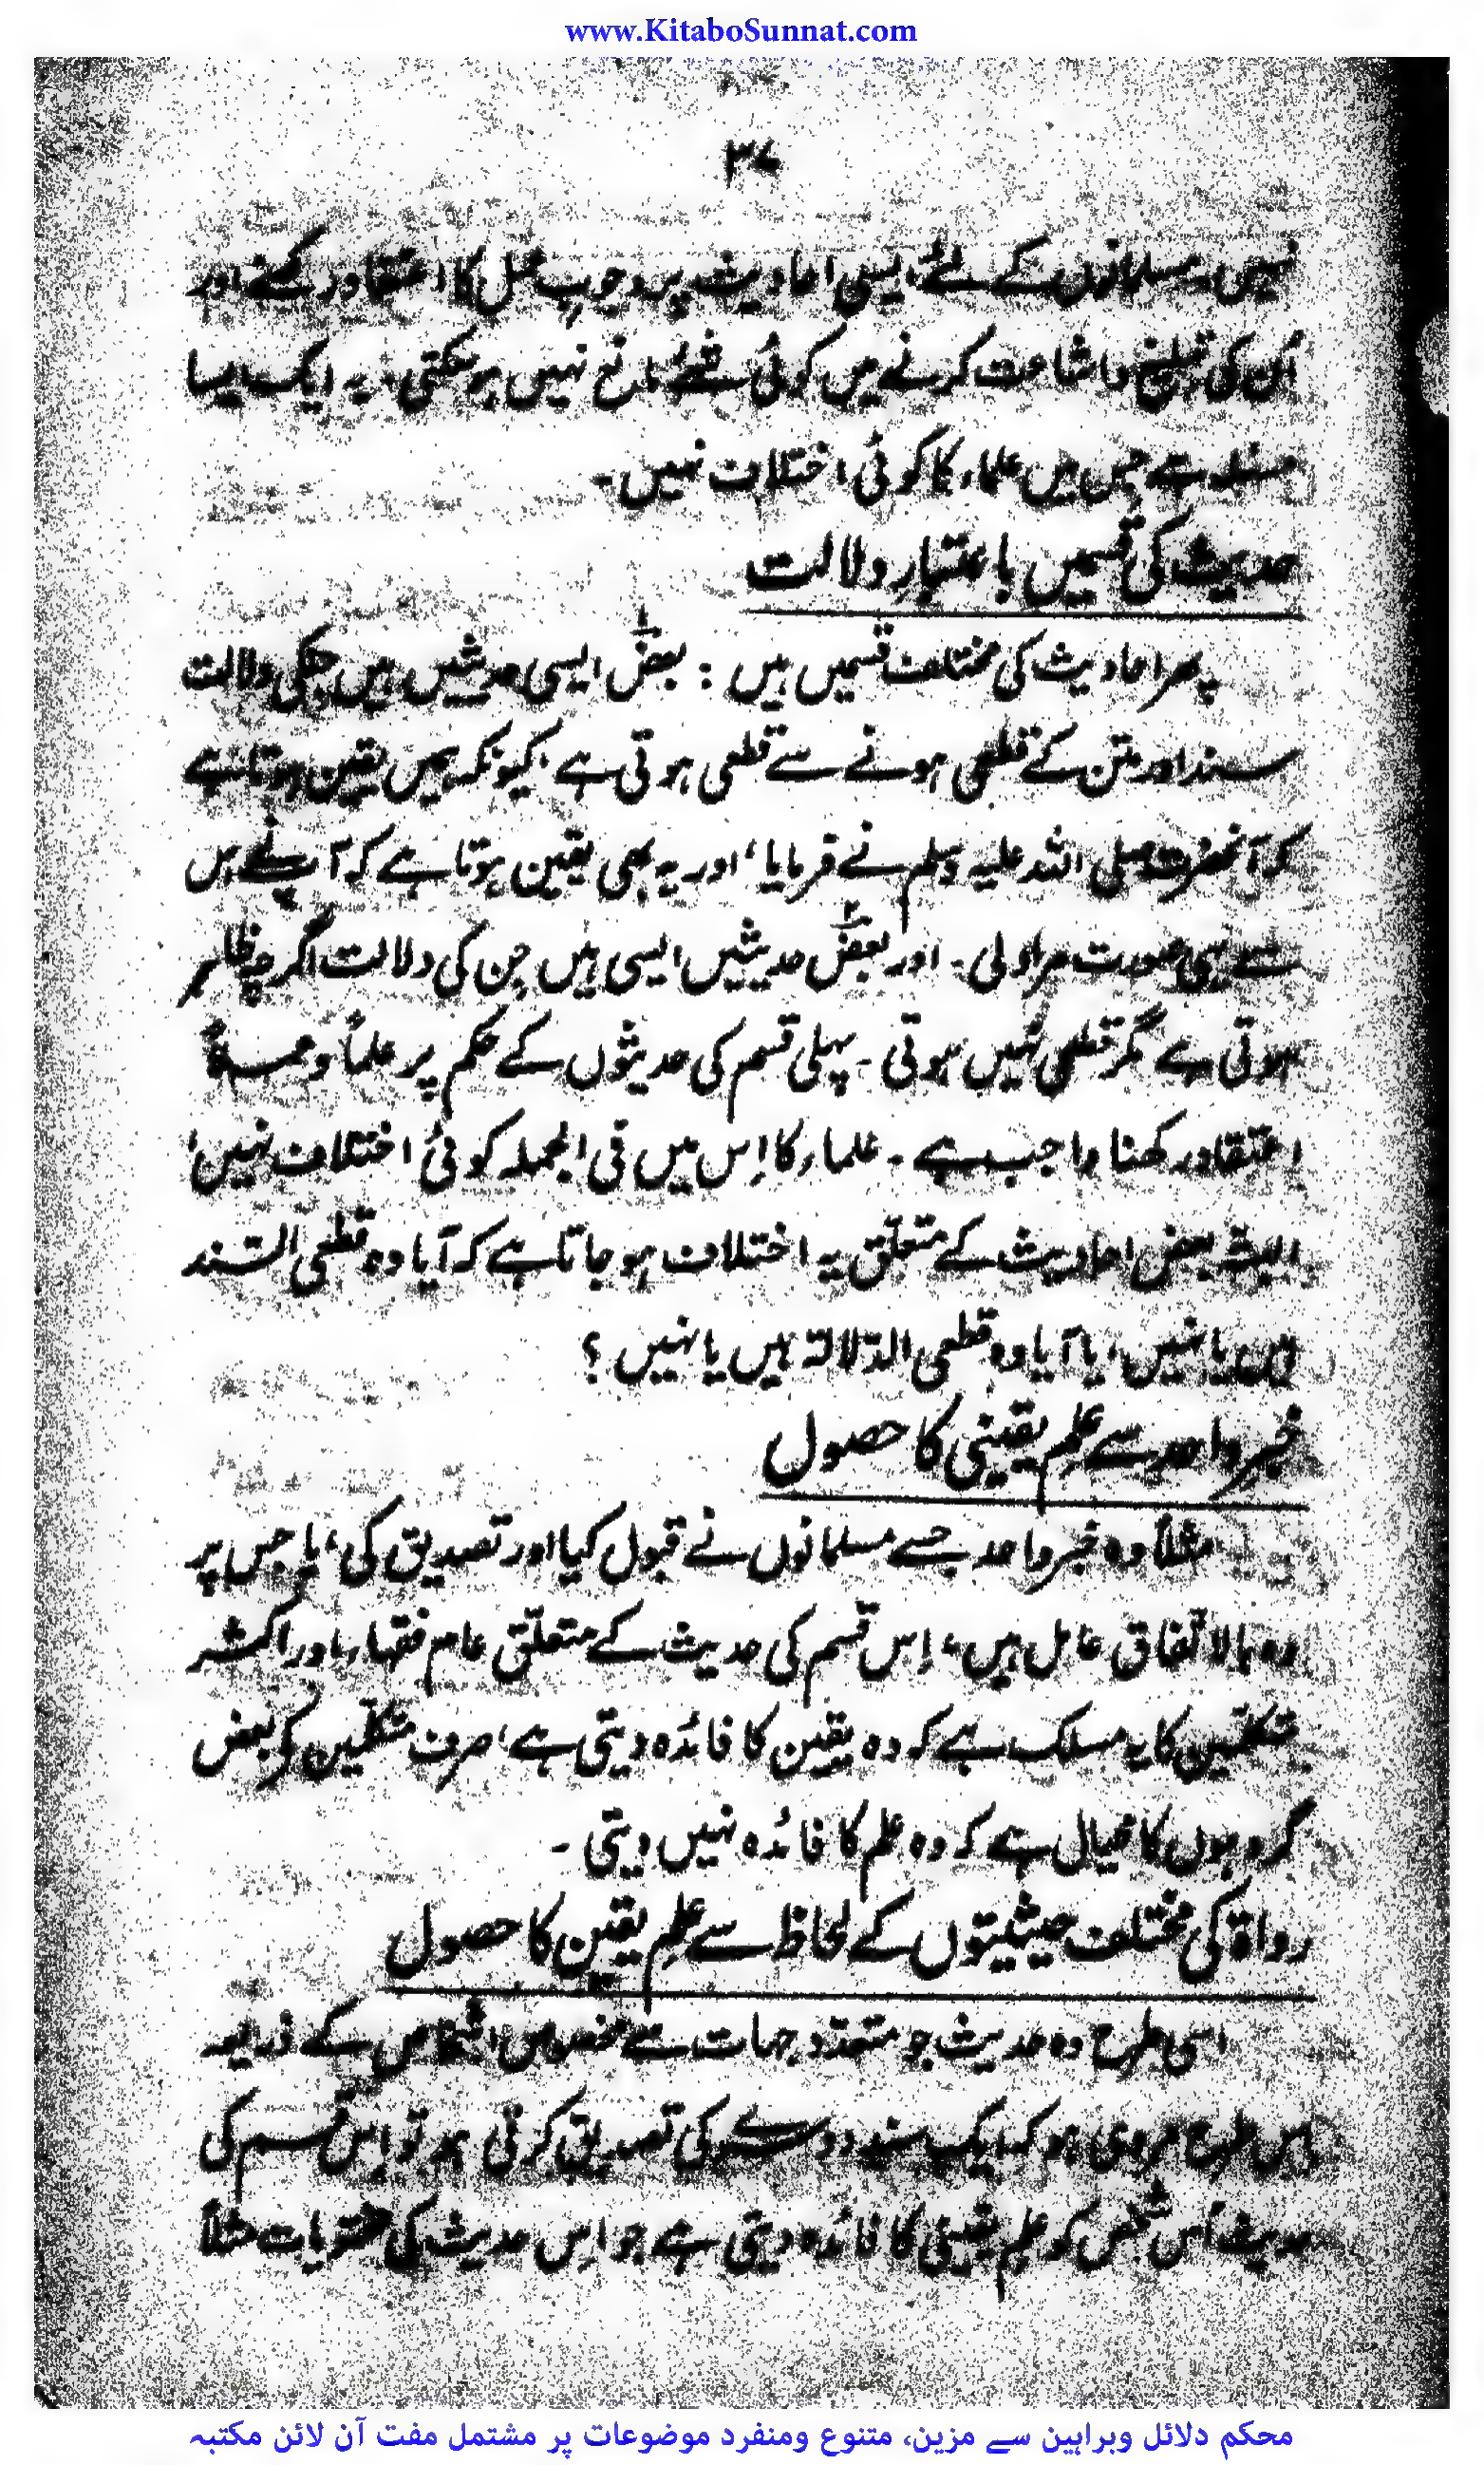 www.KitaboSunnat.com
۳۷
نہیں، مسلمانوں کے لئے ایسی احادیث پر وجوبِ عمل کا اعتقاد رکھنے اور
اُن کی تبلیغ و اشاعت کرنے میں کوئی شئے مانع نہیں ہو سکتی۔ یہ ایک ایسا
مسئلہ ہے جس میں علماء کا کوئی اختلاف نہیں۔
حدیث کی قسمیں باعتبارِ دلالت
پھر احادیث کی مختلف قسمیں ہیں : بعض ایسی حدیثیں ہیں جنکی دلالت
سند اور متن کے قطعی ہونے سے قطعی ہوتی ہے، کیونکہ ہمیں یقین ہوتا ہے
کہ آنحضرت صلی اللہ علیہ وسلم نے فرمایا، اور یہ بھی یقین ہوتا ہے کہ آپ نے اس
سے یہی صورت مراد لی۔ اور بعض حدیثیں ایسی ہیں جن کی دلالت اگرچہ ظاہر
ہوتی ہے مگر قطعی نہیں ہوتی۔ پہلی قسم کی حدیثوں کے حکم پر علماً و عملاً
اعتقاد رکھنا واجب ہے۔ علماء کا اِس میں فی الجملہ کوئی اختلاف نہیں،
البتہ بعض احادیث کے متعلّق یہ اختلاف ہو جاتا ہے کہ آیا وہ قطعی السّند
ہیں یا نہیں، یا آیا وہ قطعی الدّلالۃ ہیں یا نہیں ؟
خبرِ واحد سے علمِ یقینی کا حصول
مثلاً وہ خبر واحد جسے مسلمانوں نے قبول کیا اور تصدیق کی، یا جس پر
وہ بالاتفاق عامل ہیں، اِس قسم کی حدیث کے متعلّق عام فقہاء اور اکثر
متکلّمین کا یہ مسلک ہے کہ وہ یقین کا فائدہ دیتی ہے، صرف متکلّمین کو بعض
گروہوں کا خیال ہے کہ وہ علم کا فائدہ نہیں دیتی۔
رواۃ کی مختلف حیثیتوں کے لحاظ سے علمِ یقین کا حصول
اسی طرح وہ حدیث جو متعدّد جہات سے مخصوص اشخاص کے ذریعہ
اس طرح مروی ہو کہ ایک سند دوسرے کی تصدیق کرتی ہو تو اِس قسم کی
حدیث اُس شخص کو علمِ یقینی کا فائدہ دیتی ہے جو اِس حدیث کی مثلاً
محکم دلائل وبراہین سے مزین، متنوع ومنفرد موضوعات پر مشتمل مفت آن لائن مکتبہ